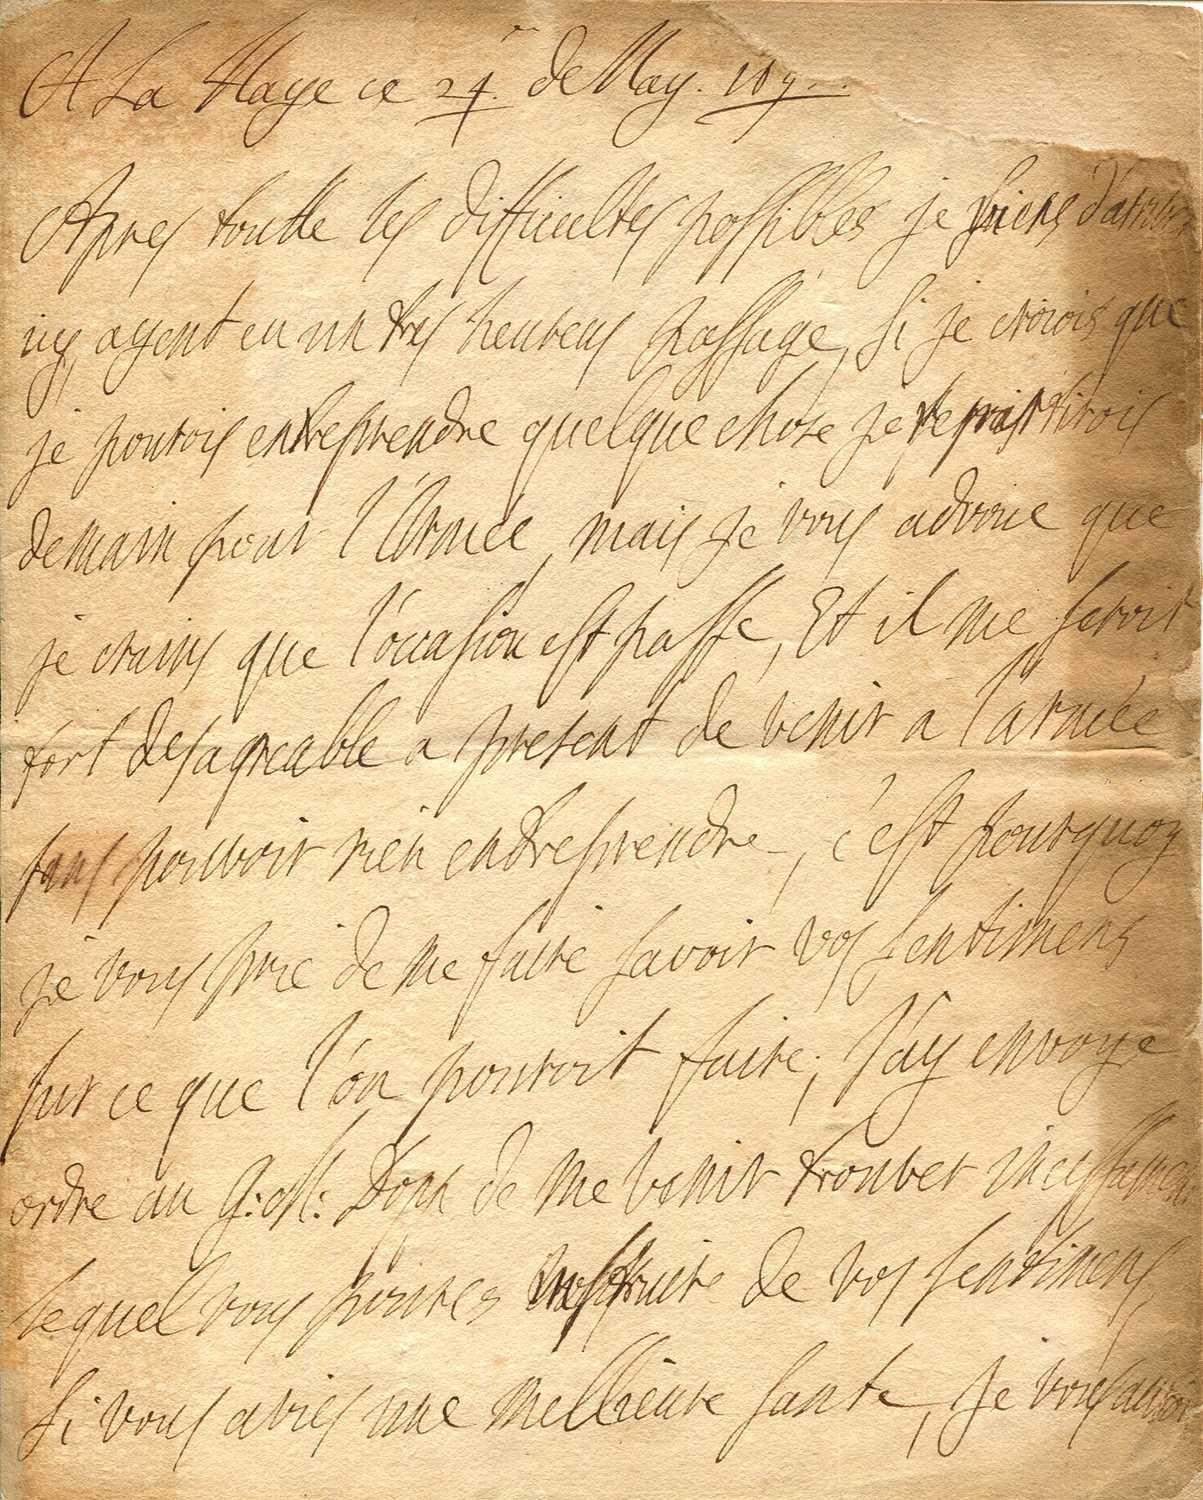 A La Haye ce 24. de May. 169..
Apres toutte les difficultes possibles je viens d'ariver
icy, ayent eu un tres heureus passage, si je croiois que
je pourois entreprendre quelque chose je partirois
demain pour l'Armée, mais je vous advoue que
je crains que l'occasion est passe, Et il me seroit
fort desagreable a present de venir a l'armée
sans pouvoir rien entreprendre, c'est pourquoy
je vous prie de me faire savoir vos sentimens
sur ce que l'on pouroit faire; J'ay envoye
ordre au G: de me venir trouver incessament
lequel vous poures instruire de vos sentimens,
si vous avies une mellieure sante, je vous aurois